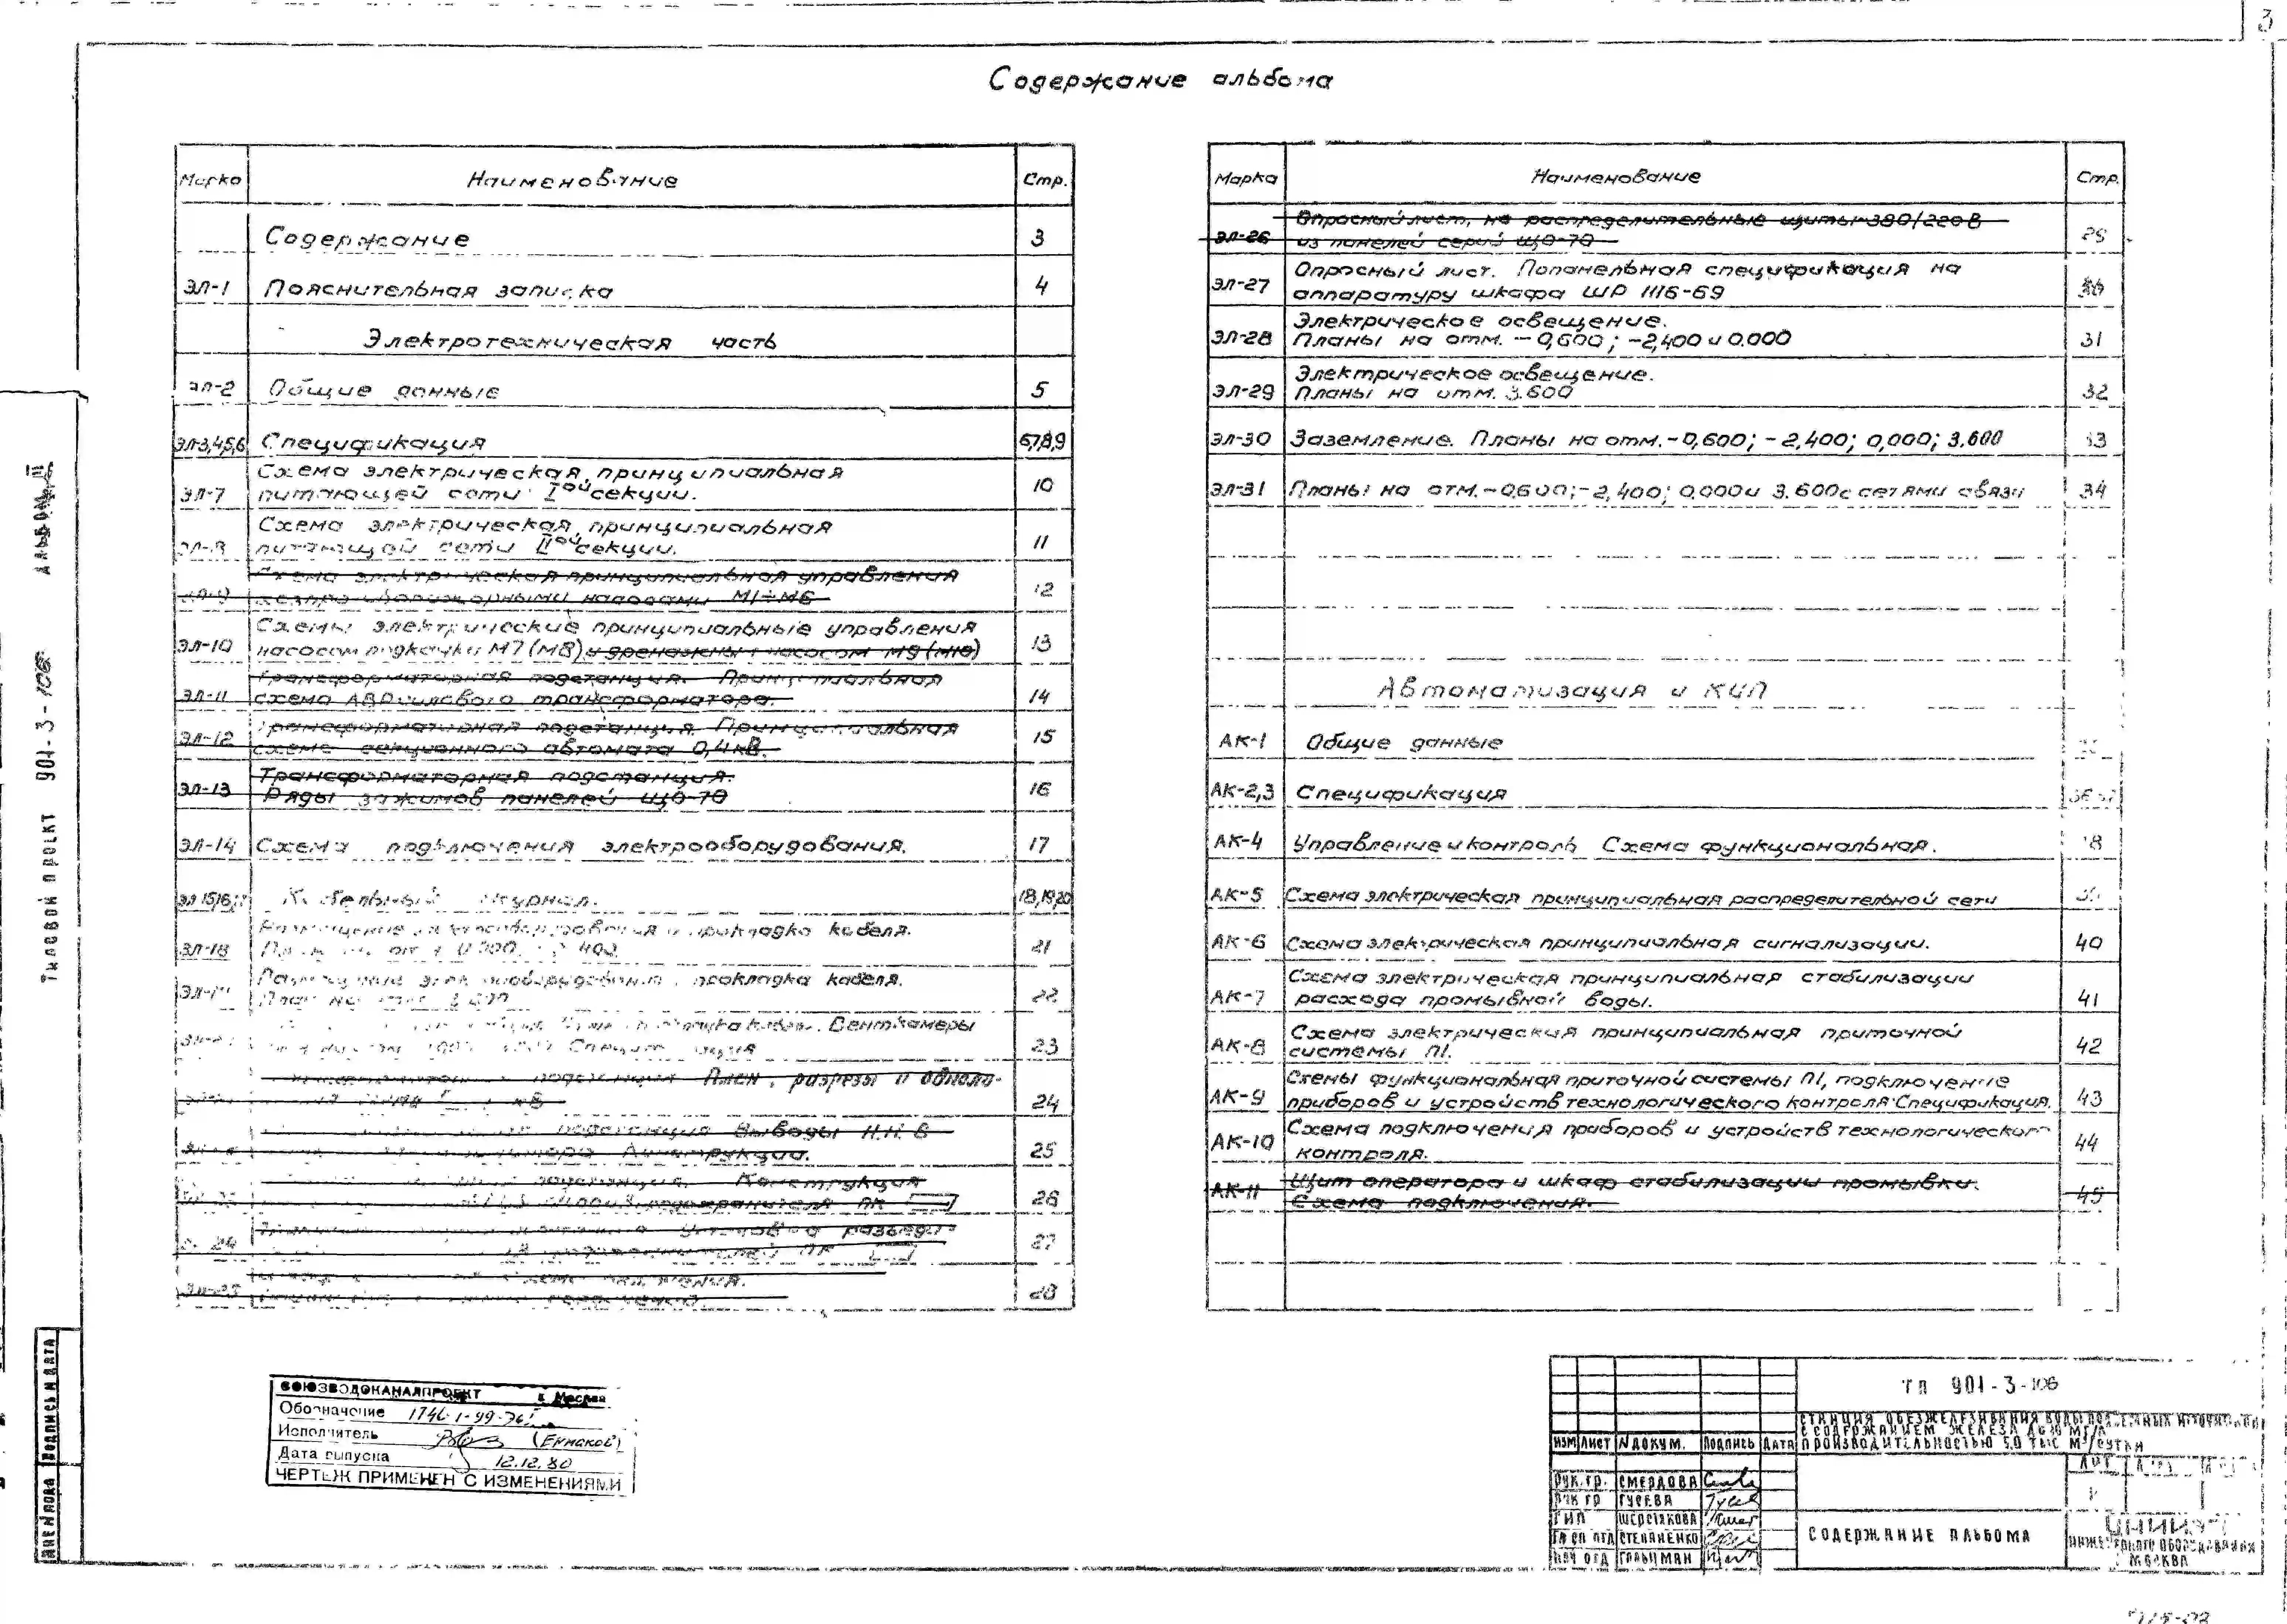 3
Содержание альбома
Марка Наименование Стр.
Содержание 3
ЭЛ-1 Пояснительная записка 4
Электротехническая часть
ЭЛ-2 Общие данные 5
ЭЛ-3,4,5,6 Спецификация 6,7,8,9
Схема электрическая принципиальная
ЭЛ-7 питающей сети I ой секции. 10
Схема электрическая принципиальная
ЭЛ-8 питающей сети II ой секции. 11
Схема электрическая принципиальная управления
насосами М1÷М6 12
Схемы электрические принципиальные управления
ЭЛ-10 насосом подкачки М7 (М8) и дренажным насосом М9 (М10) 13
Трансформаторная подстанция. Принципиальная
ЭЛ-11 схема АВР силового трансформатора. 14
Трансформаторная подстанция. Принципиальная
ЭЛ-12 схема секционного автомата 0,4кВ. 15
Трансформаторная подстанция.
ЭЛ-13 Ряды зажимов панелей ЩО-70 16
ЭЛ-14 Схема подключения электрооборудования. 17
ЭЛ 15,16,17 Кабельный журнал. 18,19,20
Размещение электрооборудования и прокладка кабеля.
ЭЛ-18 21
Размещение электрооборудования и прокладка кабеля.
22
Венткамеры
Спецификация 23
План, разрезы и
24
подстанция Выводы Н.Н. в
Конструкция. 25
подстанция. Конструкция
предохранителя ПК 26
Установка
ПК 27
28
Марка Наименование Стр.
Опросный лист, на распределительные щиты-380/220В
ЭЛ-26 из панелей серий ЩО-70 29
Опросный лист. Попанельная спецификация на
ЭЛ-27 аппаратуру шкафа ШР 1116-69 30
Электрическое освещение.
ЭЛ-28 Планы на отм. -0,600; -2,400 и 0.000 31
Электрическое освещение.
ЭЛ-29 Планы на отм. 3.600 32
ЭЛ-30 Заземление. Планы на отм.-0,600; -2,400; 0,000; 3.600 33
ЭЛ-31 Планы на отм.-0,600;-2,400; 0,000 и 3.600 с сетями связи 34
Автоматизация и КИП
АК-1 Общие данные
АК-2,3 Спецификация 36,37
АК-4 Управление и контроль Схема функциональная. 38
АК-5 Схема электрическая принципиальная распределительной сети
АК-6 Схема электрическая принципиальная сигнализации. 40
Схема электрическая принципиальная стабилизации
АК-7 расхода промывной воды. 41
Схема электрическая принципиальная приточной
АК-8 системы П1. 42
Схемы функциональная приточной системы П1, подключение
АК-9 приборов и устройств технологического контроля. Спецификация. 43
Схема подключения приборов и устройств технологического
АК-10 контроля. 44
Щит оператора и шкаф стабилизации промывки.
АК-11 Схема подключения. 45
Типовой проект 901-3-106 Альбом III
ИНВ.№ ПОДЛ. ПОДПИСЬ И ДАТА
СОЮЗВОДОКАНАЛПРОЕКТ г. Москва
Обозначение
Исполнитель (Ермаков)
Дата выпуска 12.12.80
ЧЕРТЕЖ ПРИМЕНЕН С ИЗМЕНЕНИЯМИ
ТП 901-3-106
СТАНЦИЯ ОБЕЗЖЕЛЕЗИВАНИЯ ВОДЫ ПОДЗЕМНЫХ ИСТОЧНИКОВ
С СОДЕРЖАНИЕМ ЖЕЛЕЗА ДО 10 МГ/Л
ПРОИЗВОДИТЕЛЬНОСТЬЮ 5,0 ТЫС М³/СУТКИ
ИЗМ ЛИСТ № ДОКУМ. ПОДПИСЬ ДАТА
РУК.ГР. СМЕРДОВА
РУК ГР ГУСЕВА
ГИП ШЕРСТЯКОВА
ГЛ СП ОТД СТЕПАНЕНКО
НАЧ ОТД ГОЛЬЦМАН
СОДЕРЖАНИЕ АЛЬБОМА
ЦНИИЭП
ИНЖЕНЕРНОГО ОБОРУДОВАНИЯ
МОСКВА